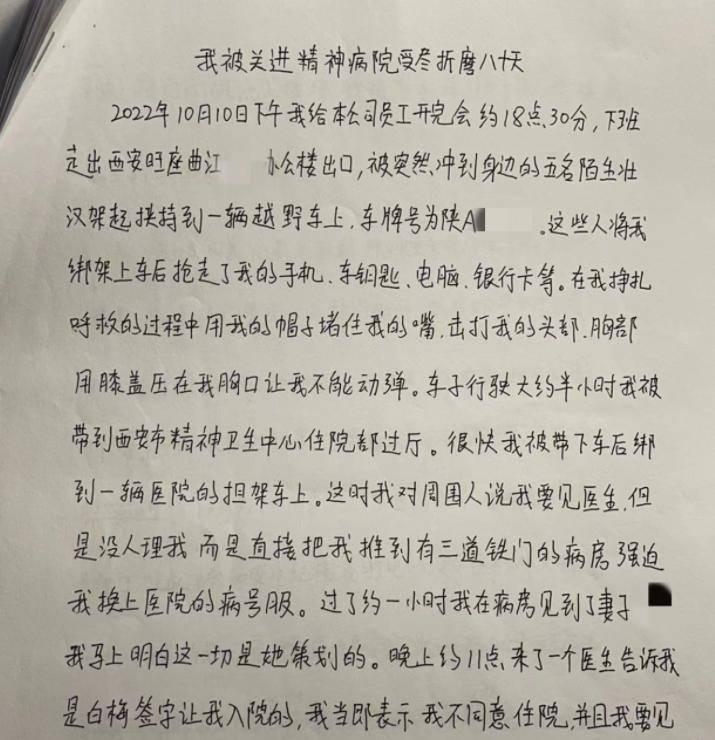 我被关进精神病院受尽折磨八十天
2022年10月10日下午我给本公司员工开完会约18点30分,下班
走出西安旺座曲江 办公楼出口,被突然冲到身边的五名陌生壮
汉架起挟持到一辆越野车上,车牌号为陕A 。这些人将我
绑架上车后抢走了我的手机、车钥匙、电脑、银行卡等。在我挣扎
呼救的过程中用我的帽子堵住我的嘴,击打我的头部、胸部
用膝盖压在我胸口让我不能动弹。车子行驶大约半小时我被
带到西安市精神卫生中心住院部过厅。很快我被带下车后绑
到一辆医院的担架车上。这时我对周围人说我要见医生,但
是没人理我而是直接把我推到有三道铁门的病房强迫
我换上医院的病号服。过了约一小时我在病房见到了妻子
我马上明白这一切是她策划的。晚上约11点来了一个医生告诉我
是白梅签字让我入院的,我当即表示我不同意住院,并且我要见